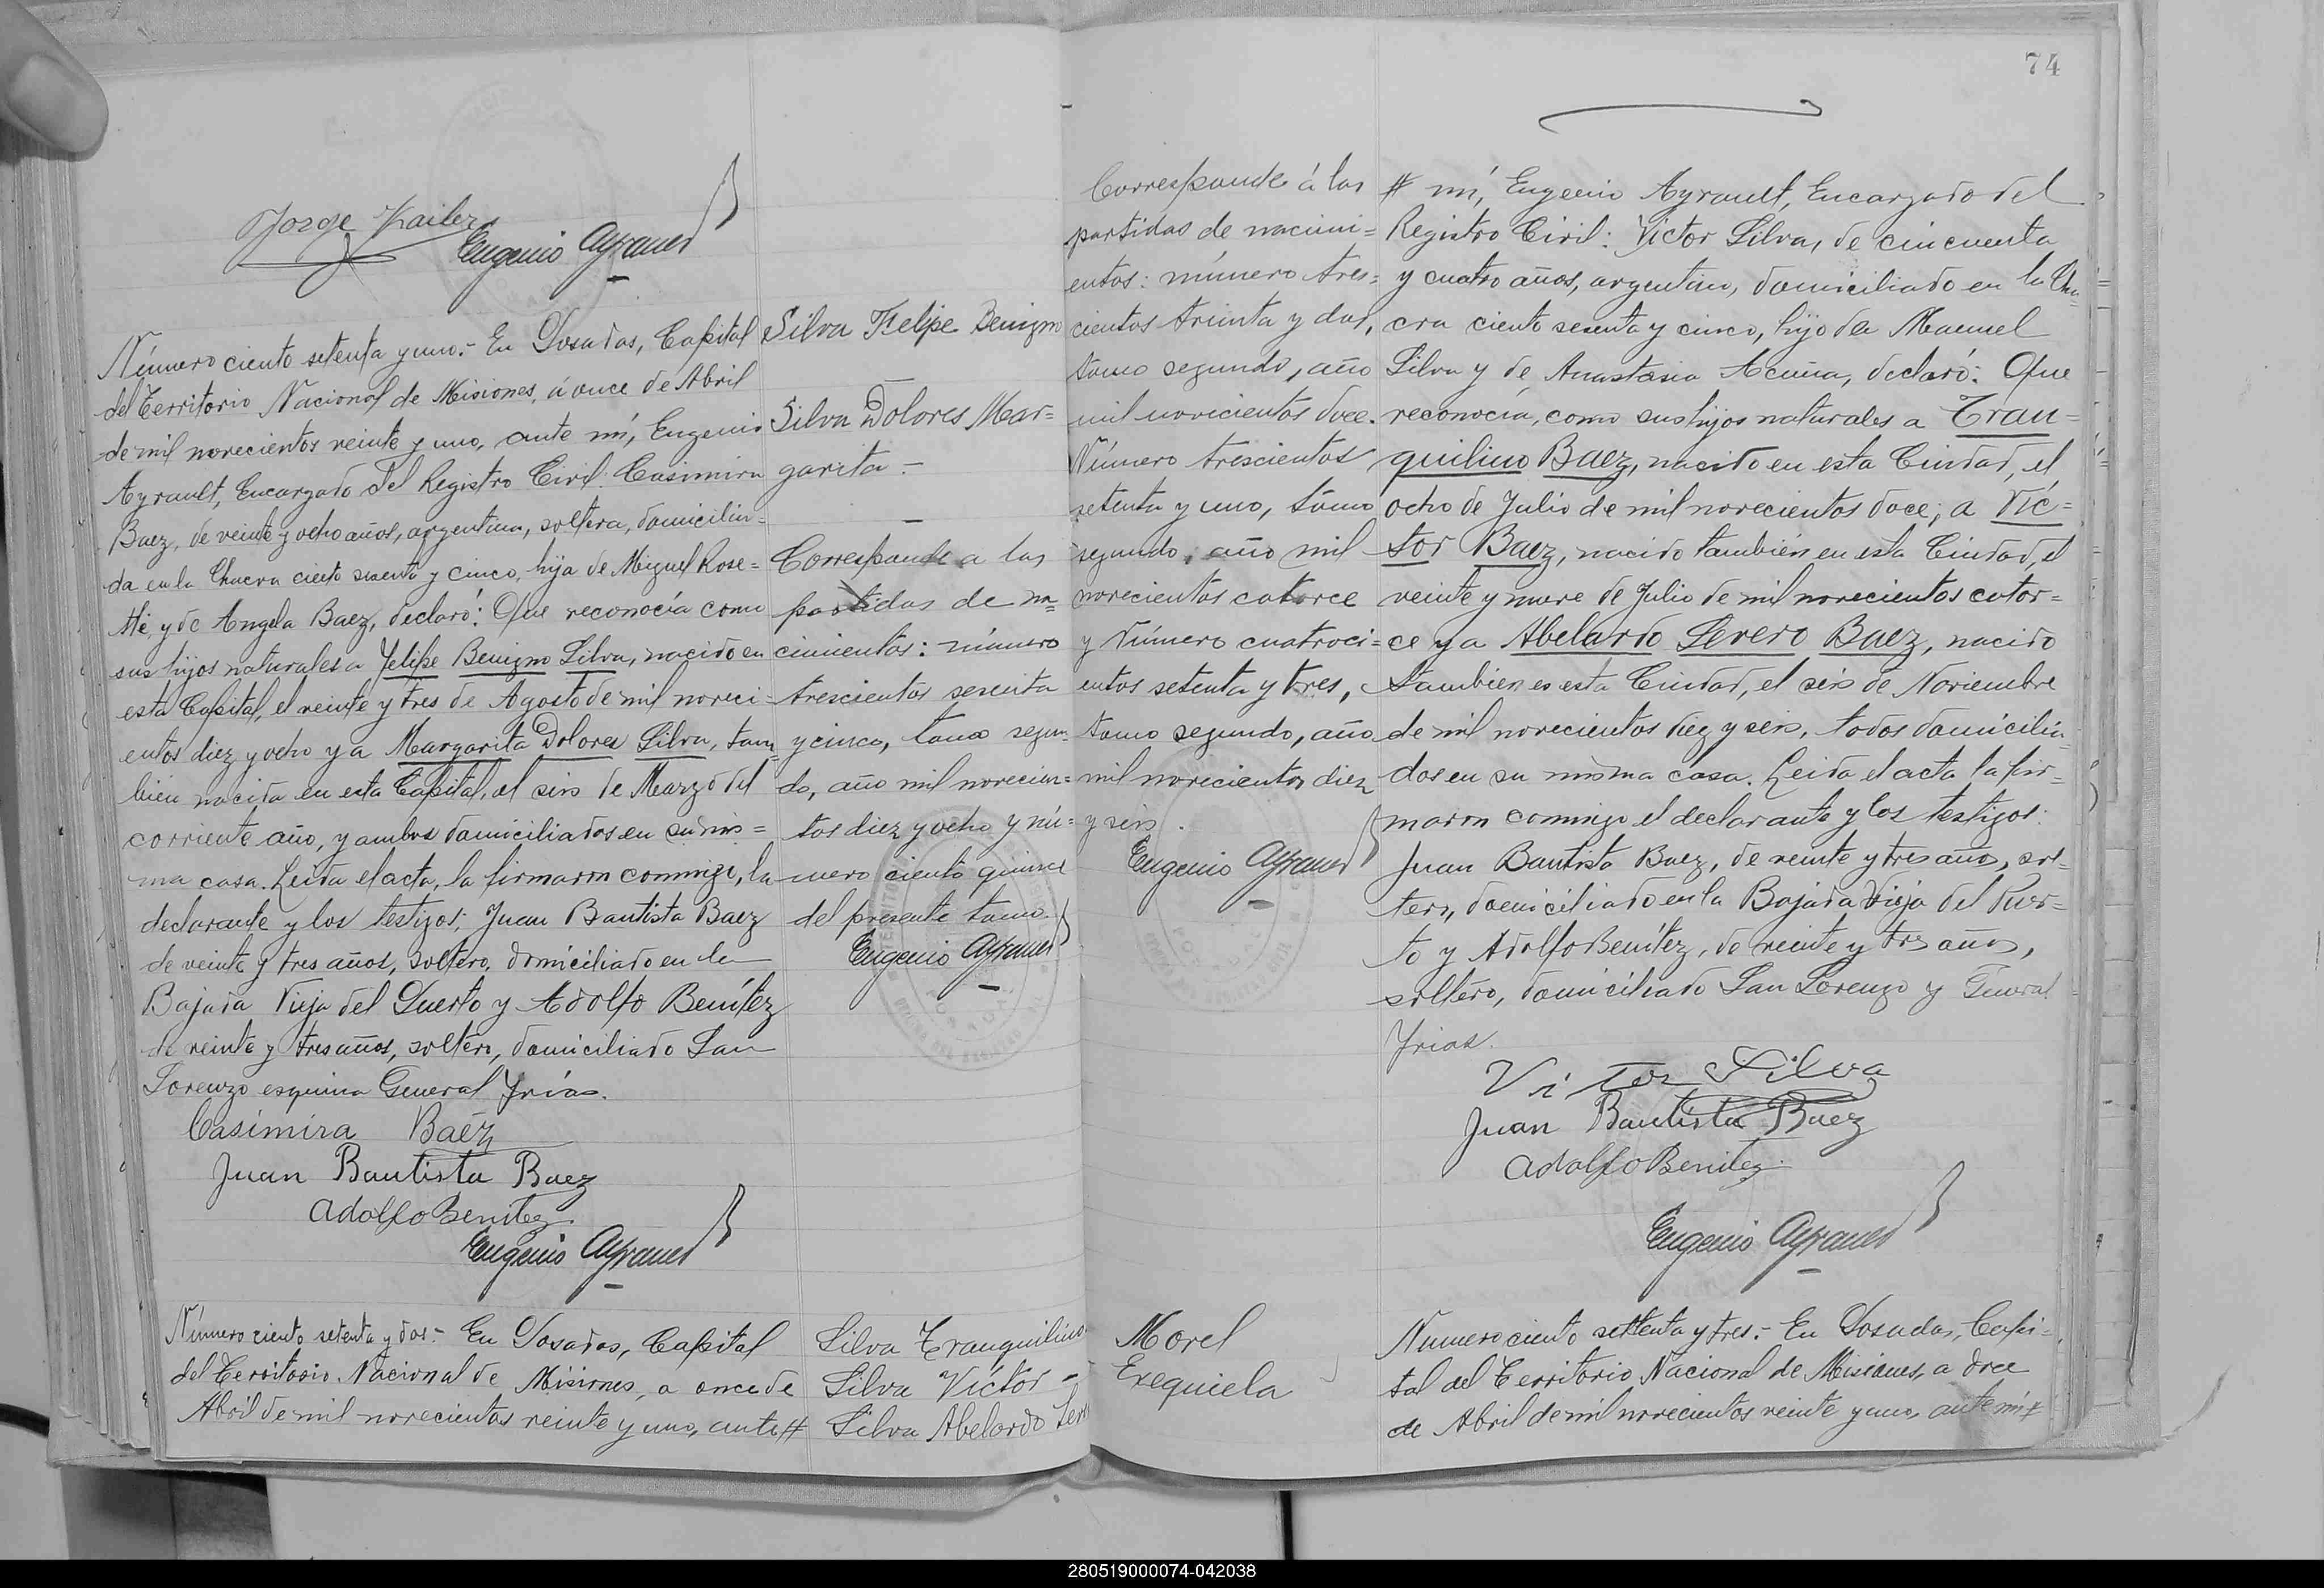 74
Jorge
Eugenio Ayrault
Número ciento setenta y uno.- En Posadas, Capital
del Territorio Nacional de Misiones, á once de Abril
de mil novecientos veinte y uno, ante mí, Eugenio
Ayrault, Encargado del Registro Civil: Casimira
Baez, de veinte y ocho años, argentina, soltera, domicilia=
da en la Chacra ciento sesenta y cinco, hija de Miguel Rose=
tti, y de Angela Baez, declaró: Que reconocía como
sus hijos naturales a Felipe Benigno Silva, nacido en
esta Capital, el veinte y tres de Agosto de mil noveci-
entos diez y ocho y a Margarita Dolores Silva, tam=
bién nacida en esta Capital, el seis de Marzo del
corriente año, y ambos domiciliados en su mis=
ma casa. Leida el acta, la firmaron conmigo, la
declarante y los testigos; Juan Bautista Baez
de veinte y tres años, soltero, domiciliado en la
Bajada Vieja del Puerto y Adolfo Benítez
de veinte y tres años, soltero, domiciliado San
Lorenzo esquina General Frías.
Casimira Baéz
Juan Bautista Baez
Adolfo Benitez
Eugenio Ayrault
Silva Felipe Benigno
Silva Dolores Mar=
garita.-
Corresponde a las
partidas de na=
cimientos: número
trescientos sesenta
y cinco, tomo segun=
do, año mil novecien=
tos diez y ocho y nú=
mero ciento quince
del presente tomo.
Eugenio Ayrault
Número ciento setenta y dos.- En Posadas, Capital
del Territorio Nacional de Misiones, a once de
Abril de mil novecientos veinte y uno, ante #
Silva Tranquilino
Silva Víctor -
Silva Abelardo
Corresponde á las
partidas de nacimi=
entos: número tres=
cientos treinta y dos,
tomo segundo, año
mil novecientos doce.
Número trescientos
setenta y uno, tomo
segundo, año mil
novecientos catorce
y número cuatroci=
entos setenta y tres,
tomo segundo, año
mil novecientos diez
y seis.
Eugenio Ayrault
# mí, Eugenio Ayrault, Encargado del
Registro Civil: Víctor Silva, de cincuenta
y cuatro años, argentino, domiciliado en la Cha=
cra ciento sesenta y cinco, hijo de Manuel
Silva y de Anastasia Acuña, declaró: Que
reconocía, como sus hijos naturales a Tran=
quilino Baez, nacido en esta Ciudad, el
ocho de Julio de mil novecientos doce; a Víc=
tor Baez, nacido también en esta Ciudad, el
veinte y nueve de Julio de mil novecientos cator=
ce y a Abelardo Severo Baez, nacido
tambien en esta Ciudad, el seis de Noviembre
de mil novecientos diez y seis, todos domicilia=
dos en su misma casa. Leida el acta la fir=
maron conmigo el declarante y los testigos:
Juan Bautista Baez, de veinte y tres años, sol=
tero, domiciliado en la Bajada Vieja del Puer=
to y Adolfo Benítez, de veinte y tres años,
soltero, domiciliado San Lorenzo y General
Frías.
Victor Silva
Juan Bautista Baez
Adolfo Benitez
Eugenio Ayrault
Morel
Exequiela
Numero ciento settenta y tres.- En Posadas, Capi=
tal del Territorio Nacional de Misiones, a doce
de Abril de mil novecientos veinte y uno, ante mí #
280519000074-042038